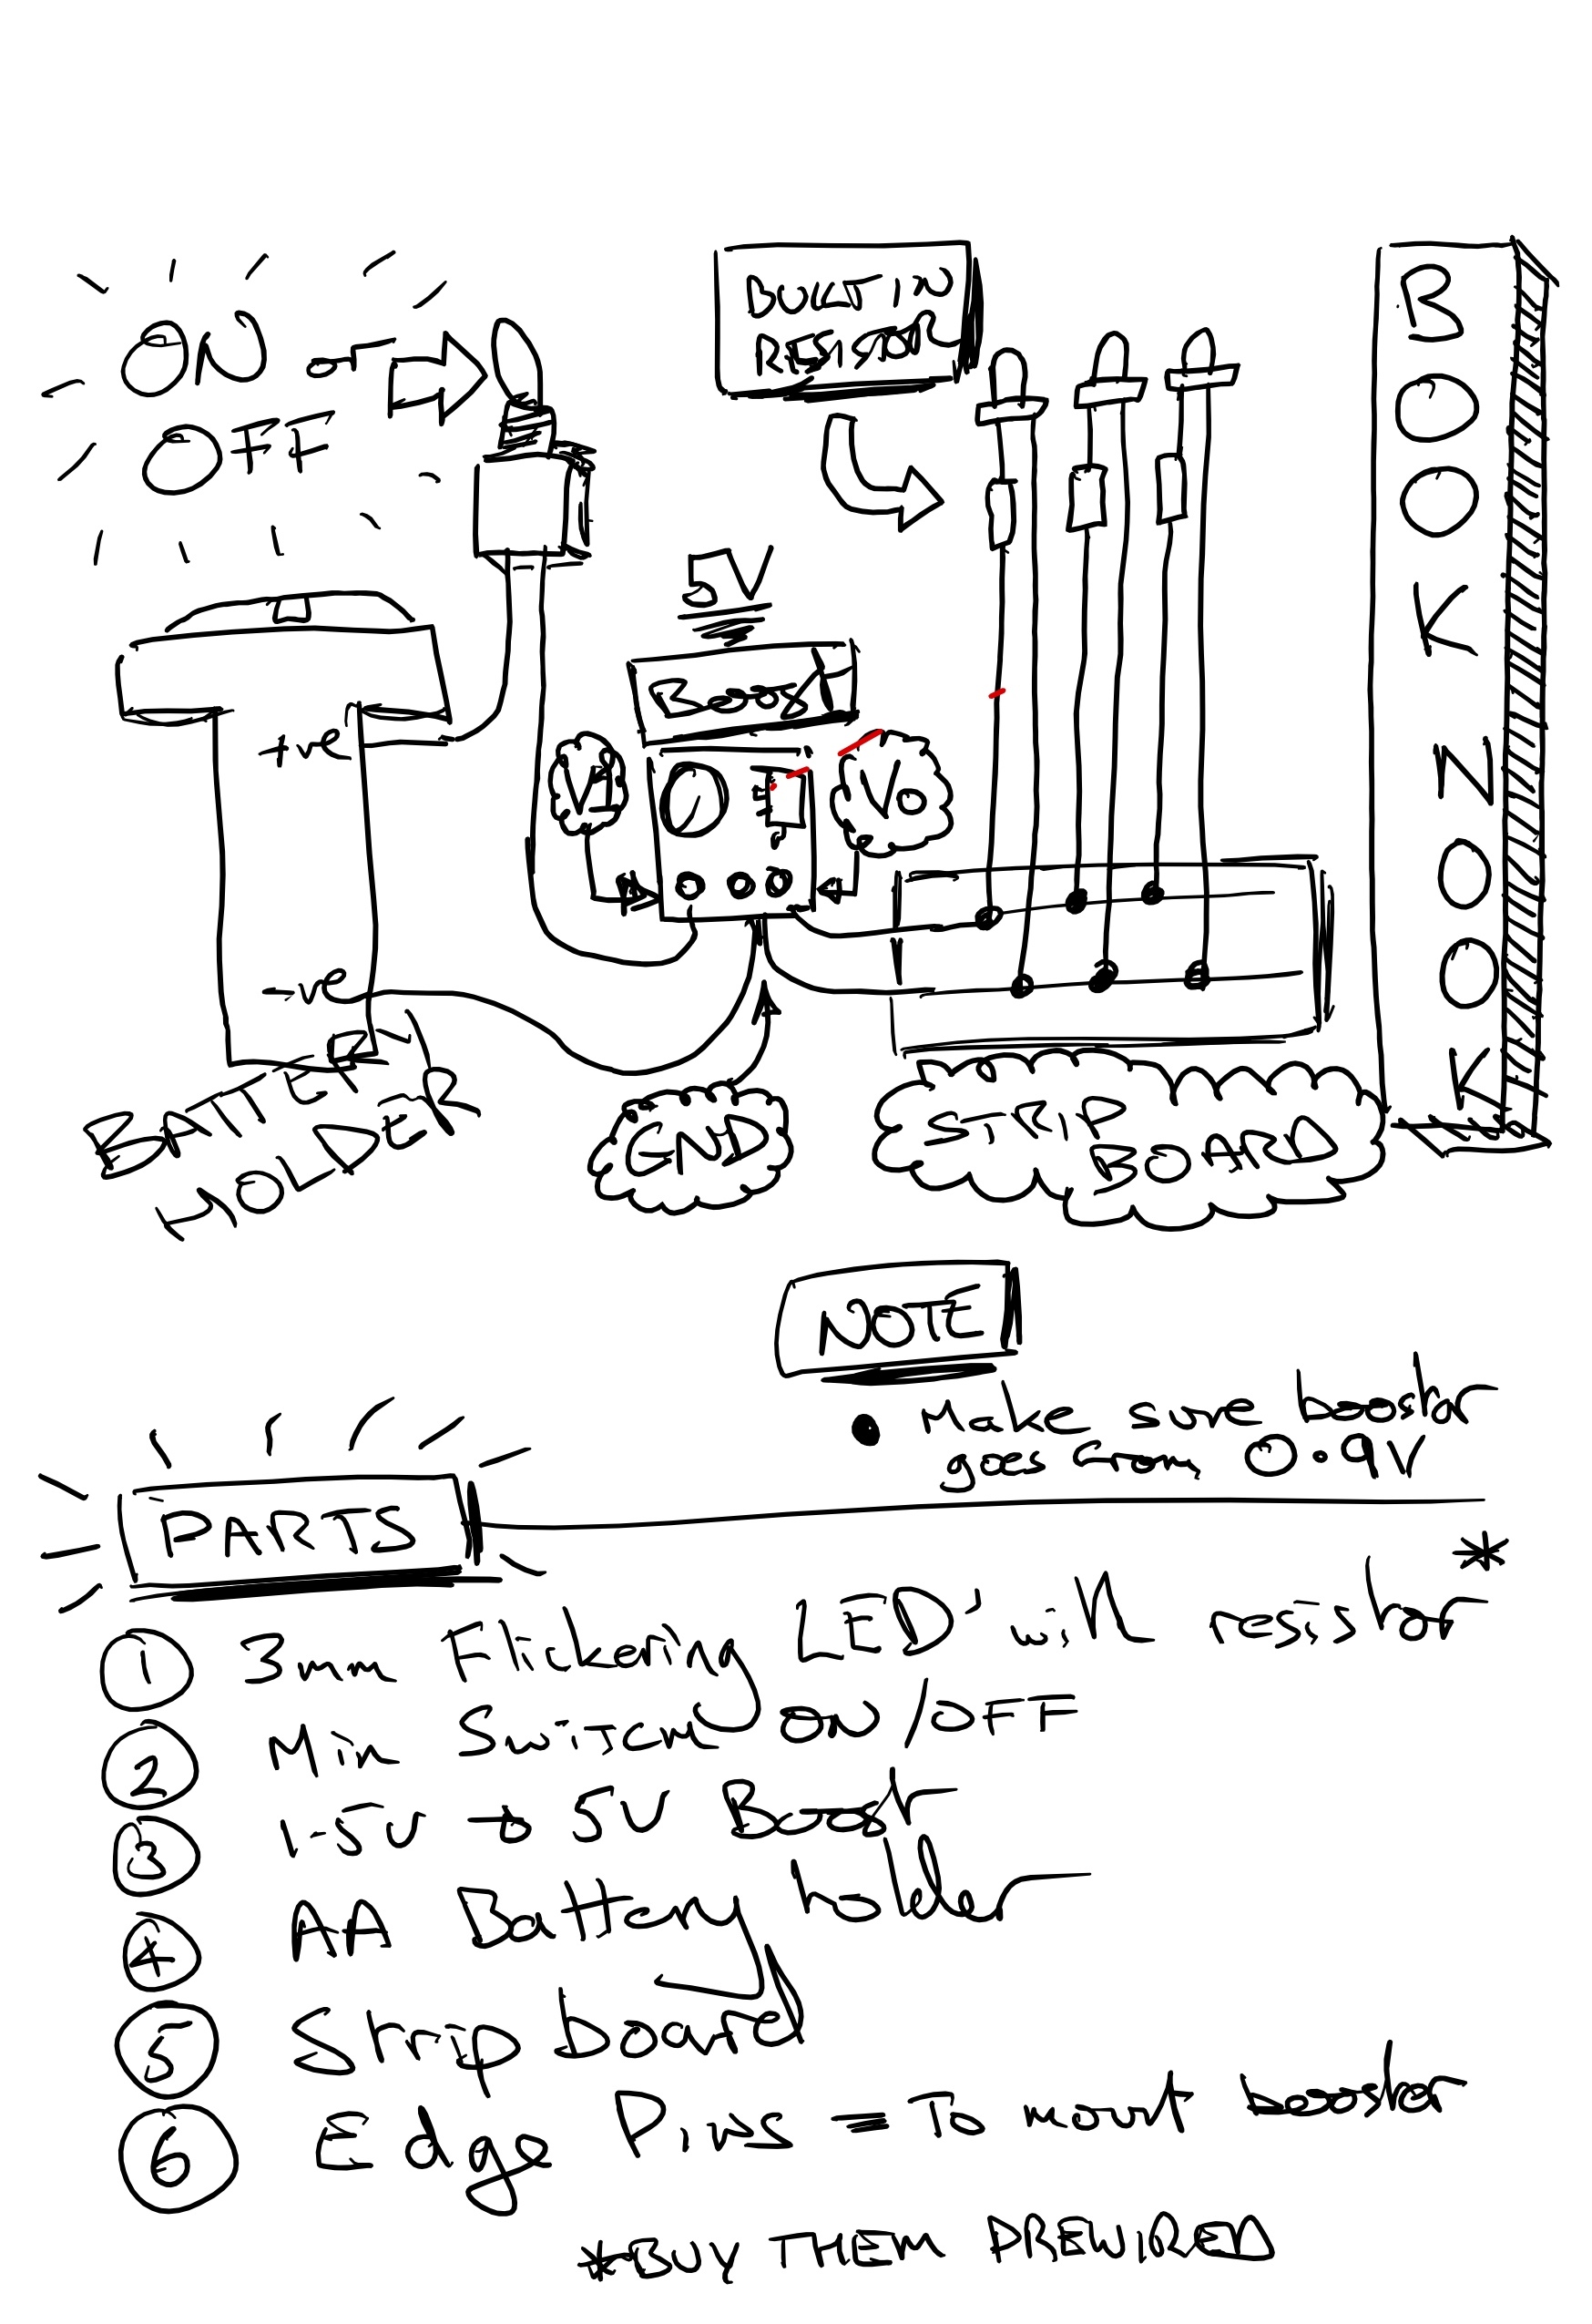 BUILT IN
RESISTOR
ON or
OFF
5V
Boost
+ve
Vi
Vo
-ve
BATTERY
HOLDER
GND
STRIP
BOARD
BOOK NOOK
NOTE
• Make sure booster
goes from 0.9V
PARTS
1 3mm Flickering LED's with resistor *
2 Min Switch ON/OFF
3 1.5V → 5V Boost
4 AA Battery holder
5 Strip board
6 Edge Pins = To mount booster
*BUY THEM PREWIRED